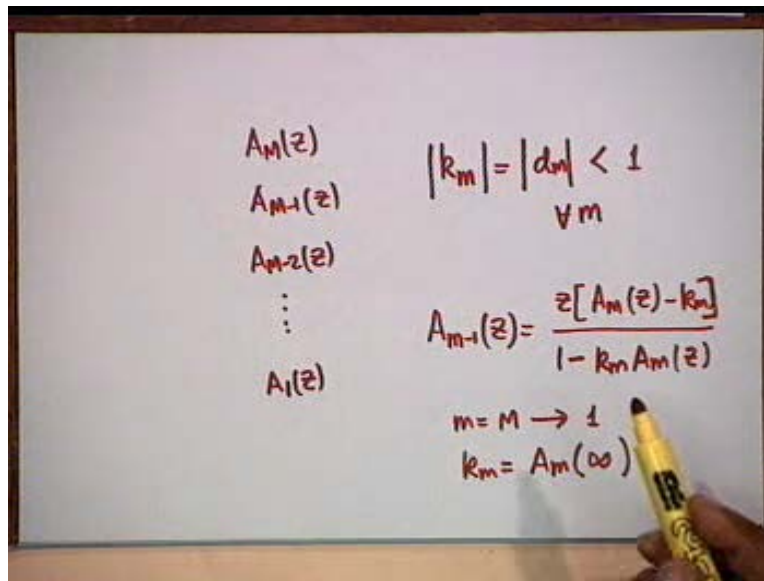 A_M(z)
A_{M-1}(z)
A_{M-2}(z)
⋮
A_1(z)
|k_m| = |d_m| < 1
∀ m
A_{m-1}(z) = \frac{z[A_m(z) - k_m]}{1 - k_m A_m(z)}
m = M → 1
k_m = A_m(∞)